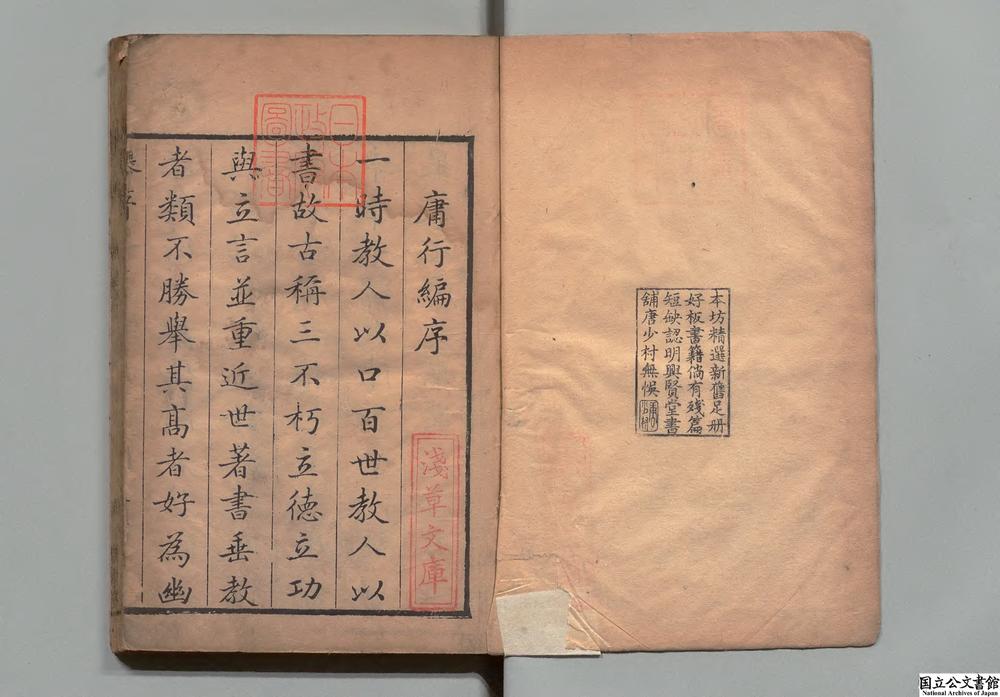 本坊精選新舊足冊
好板書籍倘有殘篇
短缺認明興賢堂書
舖唐少村無悞
庸行編序
一時教人以口百世教人以
書故古稱三不朽立德立功
與立言並重近世著書垂教
者類不勝舉其高者好為幽
日本
政
圖書
淺草文庫
国立公文書館
National Archives of Japan